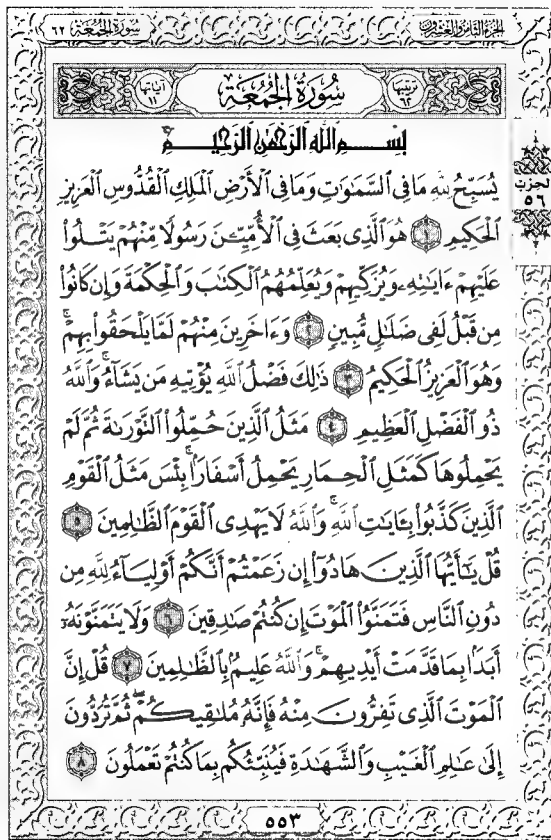 الجزء الثامن والعشرون
سورة الجمعة ٦٢
ترتيبها ٦٢
سُورَةُ الجُمُعَةِ
آياتها ١١
بِسْمِ اللَّهِ الرَّحْمَٰنِ الرَّحِيمِ
يُسَبِّحُ لِلَّهِ مَا فِى ٱلسَّمَٰوَٰتِ وَمَا فِى ٱلْأَرْضِ ٱلْمَلِكِ ٱلْقُدُّوسِ ٱلْعَزِيزِ
الحزب
٥٦
ٱلْحَكِيمِ ١ هُوَ ٱلَّذِى بَعَثَ فِى ٱلْأُمِّيِّـۧنَ رَسُولًا مِّنْهُمْ يَتْلُوا۟
عَلَيْهِمْ ءَايَٰتِهِۦ وَيُزَكِّيهِمْ وَيُعَلِّمُهُمُ ٱلْكِتَٰبَ وَٱلْحِكْمَةَ وَإِن كَانُوا۟
مِن قَبْلُ لَفِى ضَلَٰلٍ مُّبِينٍ ٢ وَءَاخَرِينَ مِنْهُمْ لَمَّا يَلْحَقُوا۟ بِهِمْ ۚ
وَهُوَ ٱلْعَزِيزُ ٱلْحَكِيمُ ٣ ذَٰلِكَ فَضْلُ ٱللَّهِ يُؤْتِيهِ مَن يَشَآءُ ۚ وَٱللَّهُ
ذُو ٱلْفَضْلِ ٱلْعَظِيمِ ٤ مَثَلُ ٱلَّذِينَ حُمِّلُوا۟ ٱلتَّوْرَىٰةَ ثُمَّ لَمْ
يَحْمِلُوهَا كَمَثَلِ ٱلْحِمَارِ يَحْمِلُ أَسْفَارًۢا ۚ بِئْسَ مَثَلُ ٱلْقَوْمِ
ٱلَّذِينَ كَذَّبُوا۟ بِـَٔايَٰتِ ٱللَّهِ ۚ وَٱللَّهُ لَا يَهْدِى ٱلْقَوْمَ ٱلظَّٰلِمِينَ ٥
قُلْ يَٰٓأَيُّهَا ٱلَّذِينَ هَادُوٓا۟ إِن زَعَمْتُمْ أَنَّكُمْ أَوْلِيَآءُ لِلَّهِ مِن
دُونِ ٱلنَّاسِ فَتَمَنَّوُا۟ ٱلْمَوْتَ إِن كُنتُمْ صَٰدِقِينَ ٦ وَلَا يَتَمَنَّوْنَهُۥٓ
أَبَدًۢا بِمَا قَدَّمَتْ أَيْدِيهِمْ ۚ وَٱللَّهُ عَلِيمٌۢ بِٱلظَّٰلِمِينَ ٧ قُلْ إِنَّ
ٱلْمَوْتَ ٱلَّذِى تَفِرُّونَ مِنْهُ فَإِنَّهُۥ مُلَٰقِيكُمْ ۖ ثُمَّ تُرَدُّونَ
إِلَىٰ عَٰلِمِ ٱلْغَيْبِ وَٱلشَّهَٰدَةِ فَيُنَبِّئُكُم بِمَا كُنتُمْ تَعْمَلُونَ ٨
٥٥٣